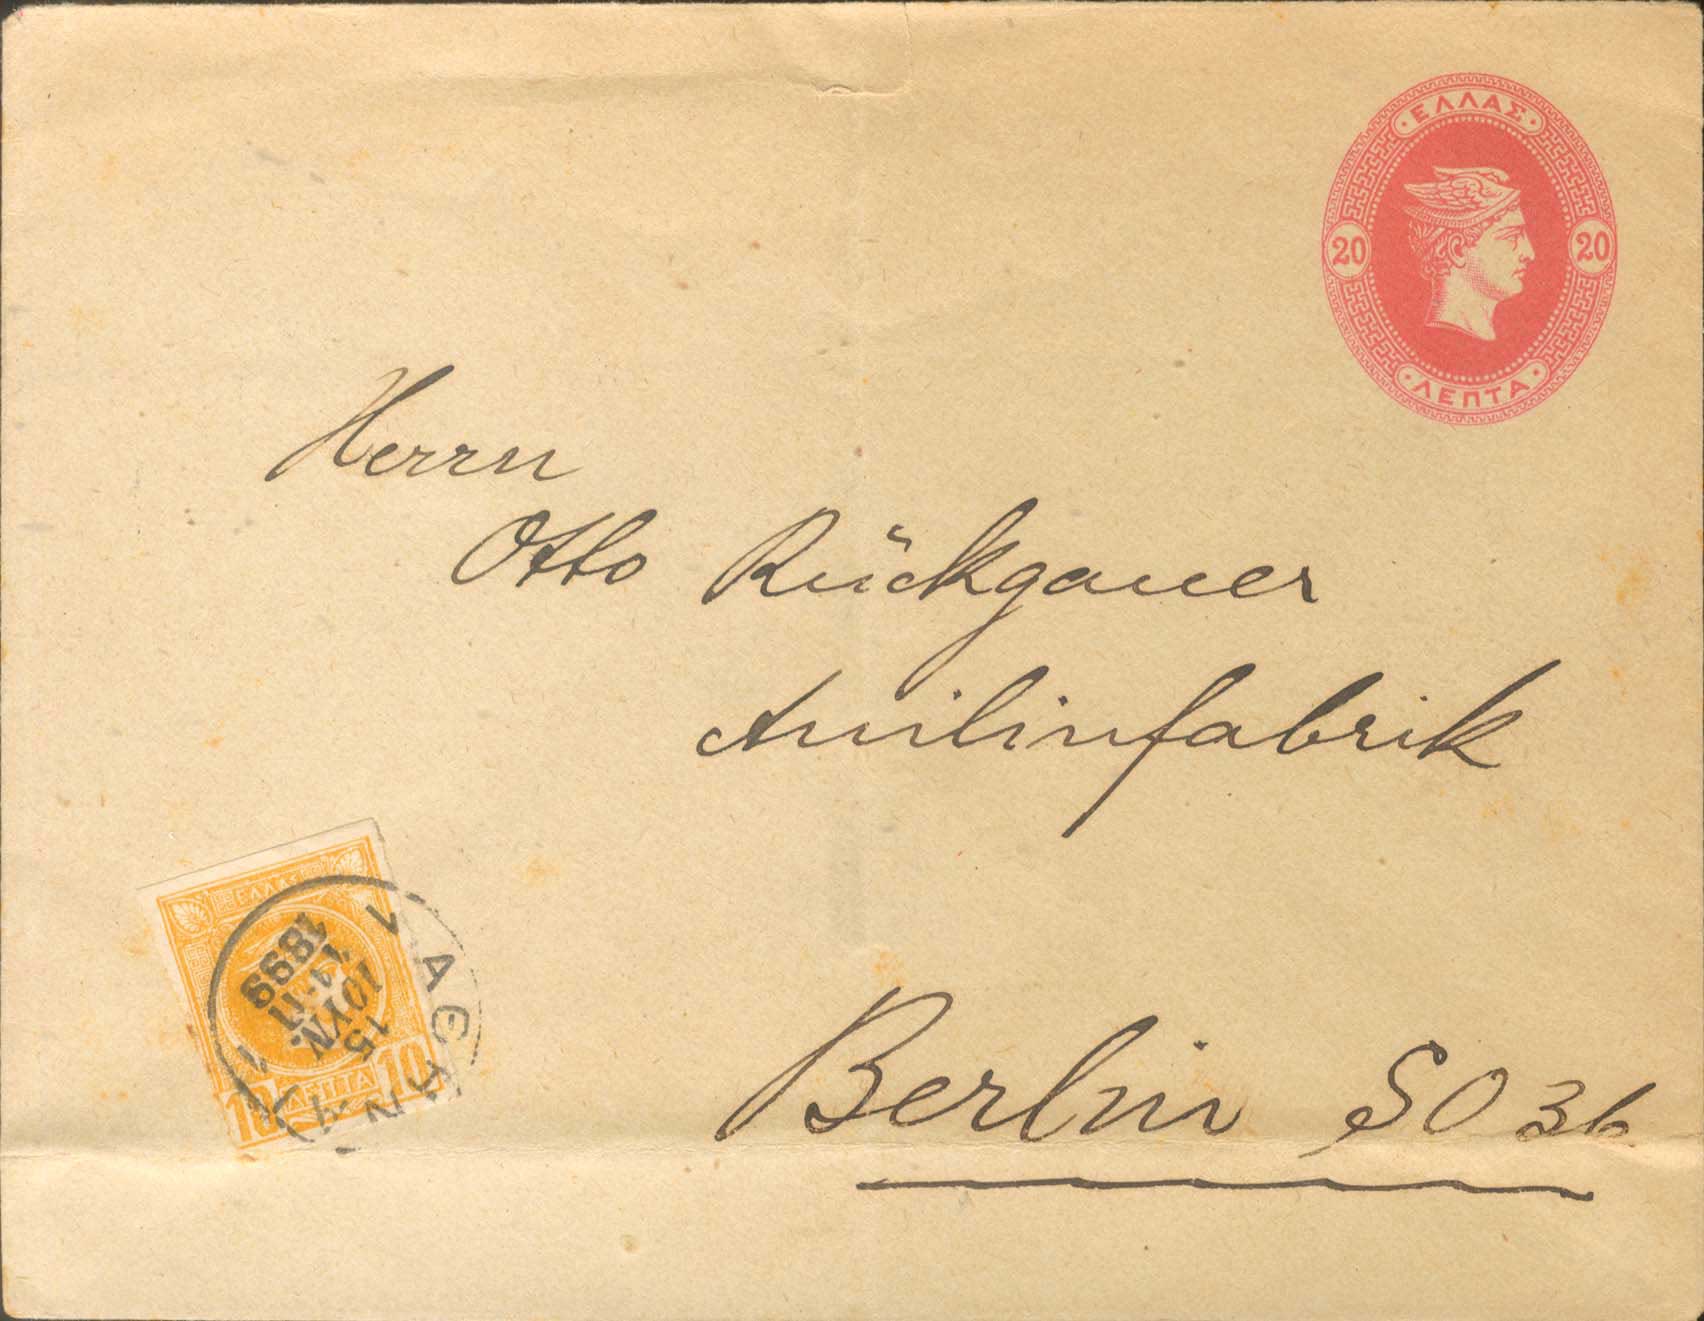 ΕΛΛΑΣ
20 20
ΛΕΠΤΑ
Herrn
Otto Rückgauer
Anilinfabrik
Berlin SO 36
ΕΛΛΑΣ
10 ΛΕΠΤΑ 10
1 ΑΘΗΝΑΙ 1
15
ΙΟΥΝ.
11-Π
1899